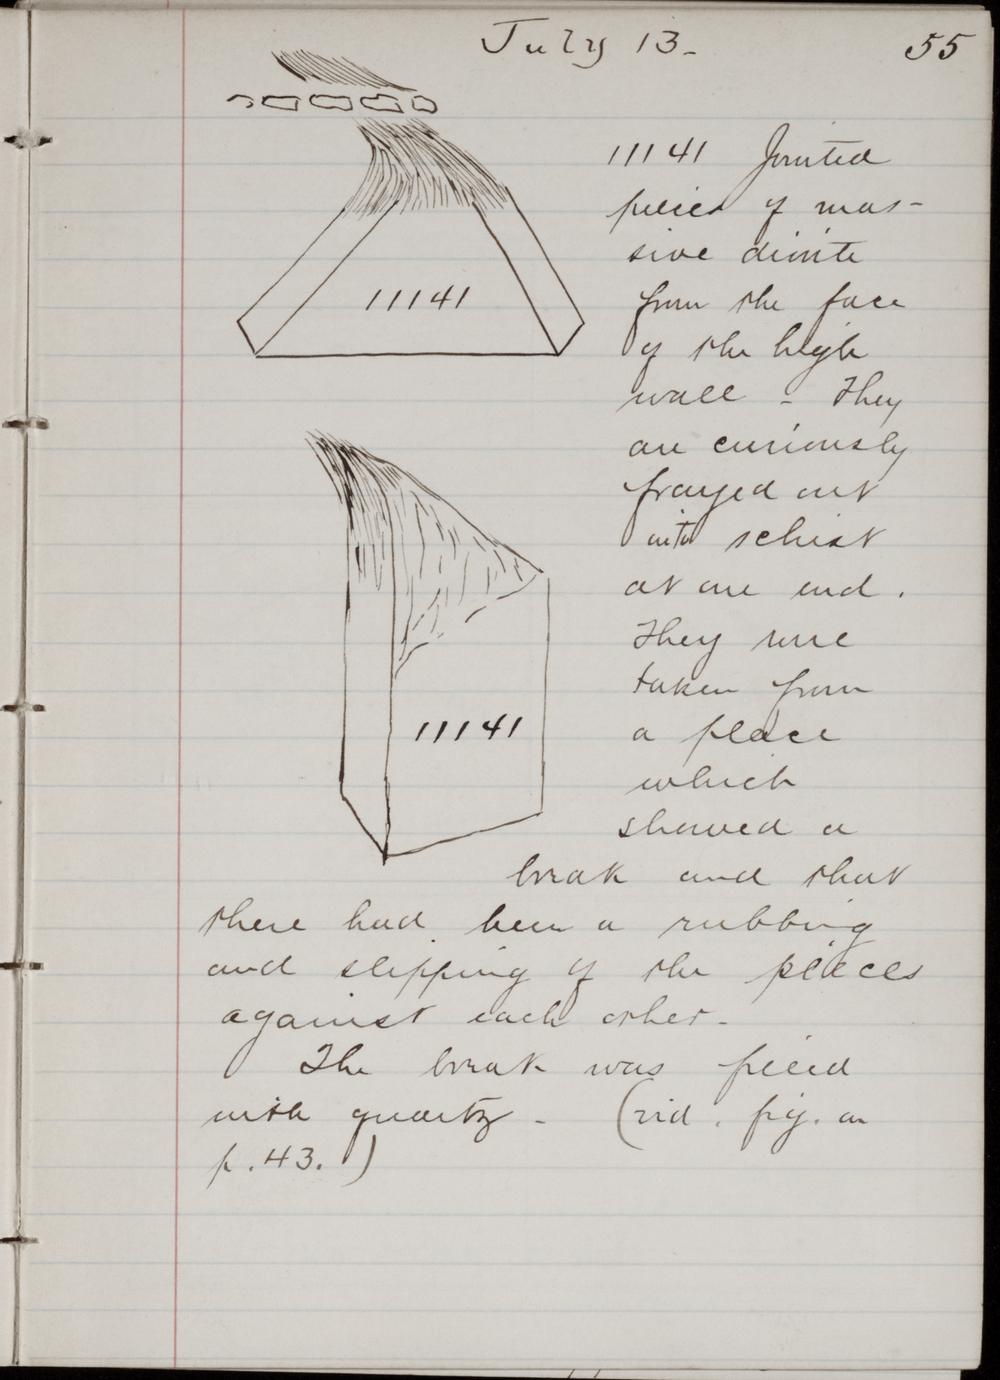 July 13-
55
11141 Jointed
pieces of mas-
sive diorite
from the face
of the high
wall - They
are curiously
frayed out
into schist
at one end.
They were
taken from
a place
which
showed a
break and that
there had been a rubbing
and slipping of the pieces
against each other-
The break was filled
with quartz - (vid. fig. on
p. 43.)
11141
11141